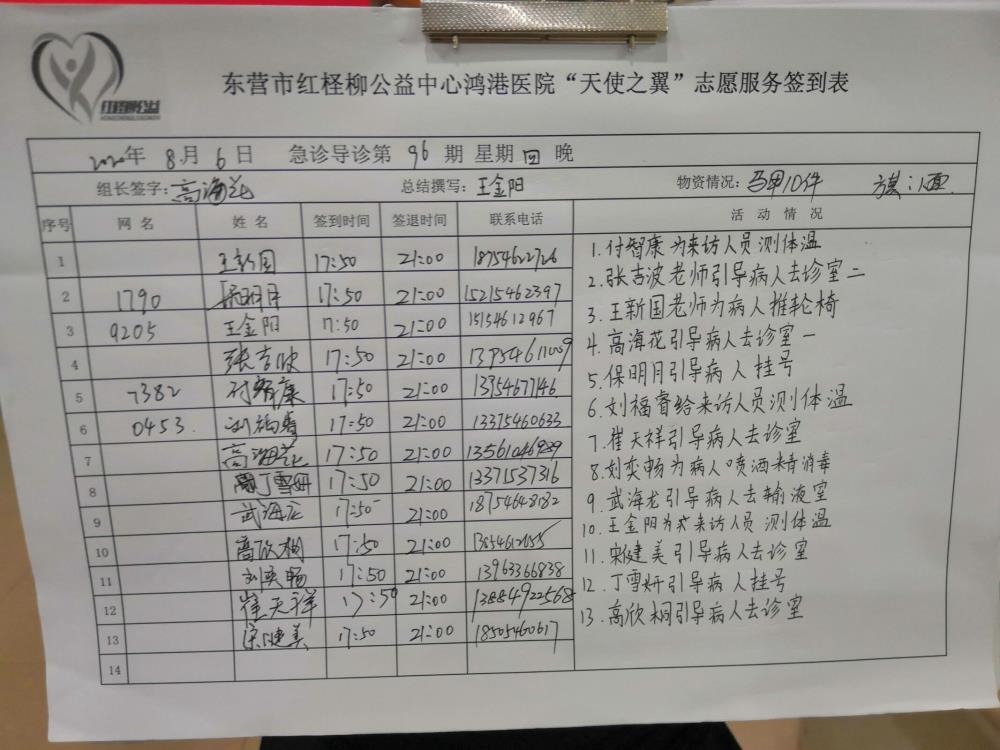 红柽柳公益
东营市红柽柳公益中心鸿港医院“天使之翼”志愿服务签到表
2020年 8月 6日 急诊导诊第 96 期 星期 四 晚
组长签字:高海花 总结撰写:王金阳 物资情况:马甲10件 旗:1面
序号 网名 姓名 签到时间 签退时间 联系电话 活动情况
1 王新国 17:50 21:00 18754622726
2 1790 保明月 17:50 21:00 15215462397
3 9205 王金阳 17:50 21:00 15154612967
4 张吉波 17:50 21:00
5 7382 付智康 17:50 21:00 13954677146
6 0453 刘福睿 17:50 21:00 13375460633
7 高海花 17:50 21:00 13561046989
8 丁雪妍 17:50 21:00 13371537316
9 武海龙 17:50 21:00 18754648182
10 高欣桐 17:50 21:00
11 刘奕畅 17:50 21:00 13963366838
12 崔天祥 17:50 21:00 13884922568
13 宋健美 17:50 21:00 18505460617
14
1.付智康为来访人员测体温
2.张吉波老师引导病人去诊室二
3.王新国老师为病人推轮椅
4.高海花引导病人去诊室一
5.保明月引导病人挂号
6.刘福睿给来访人员测体温
7.崔天祥引导病人去诊室
8.刘奕畅为病人喷洒酒精消毒
9.武海龙引导病人去输液室
10.王金阳为来访人员测体温
11.宋健美引导病人去诊室
12.丁雪妍引导病人挂号
13.高欣桐引导病人去诊室